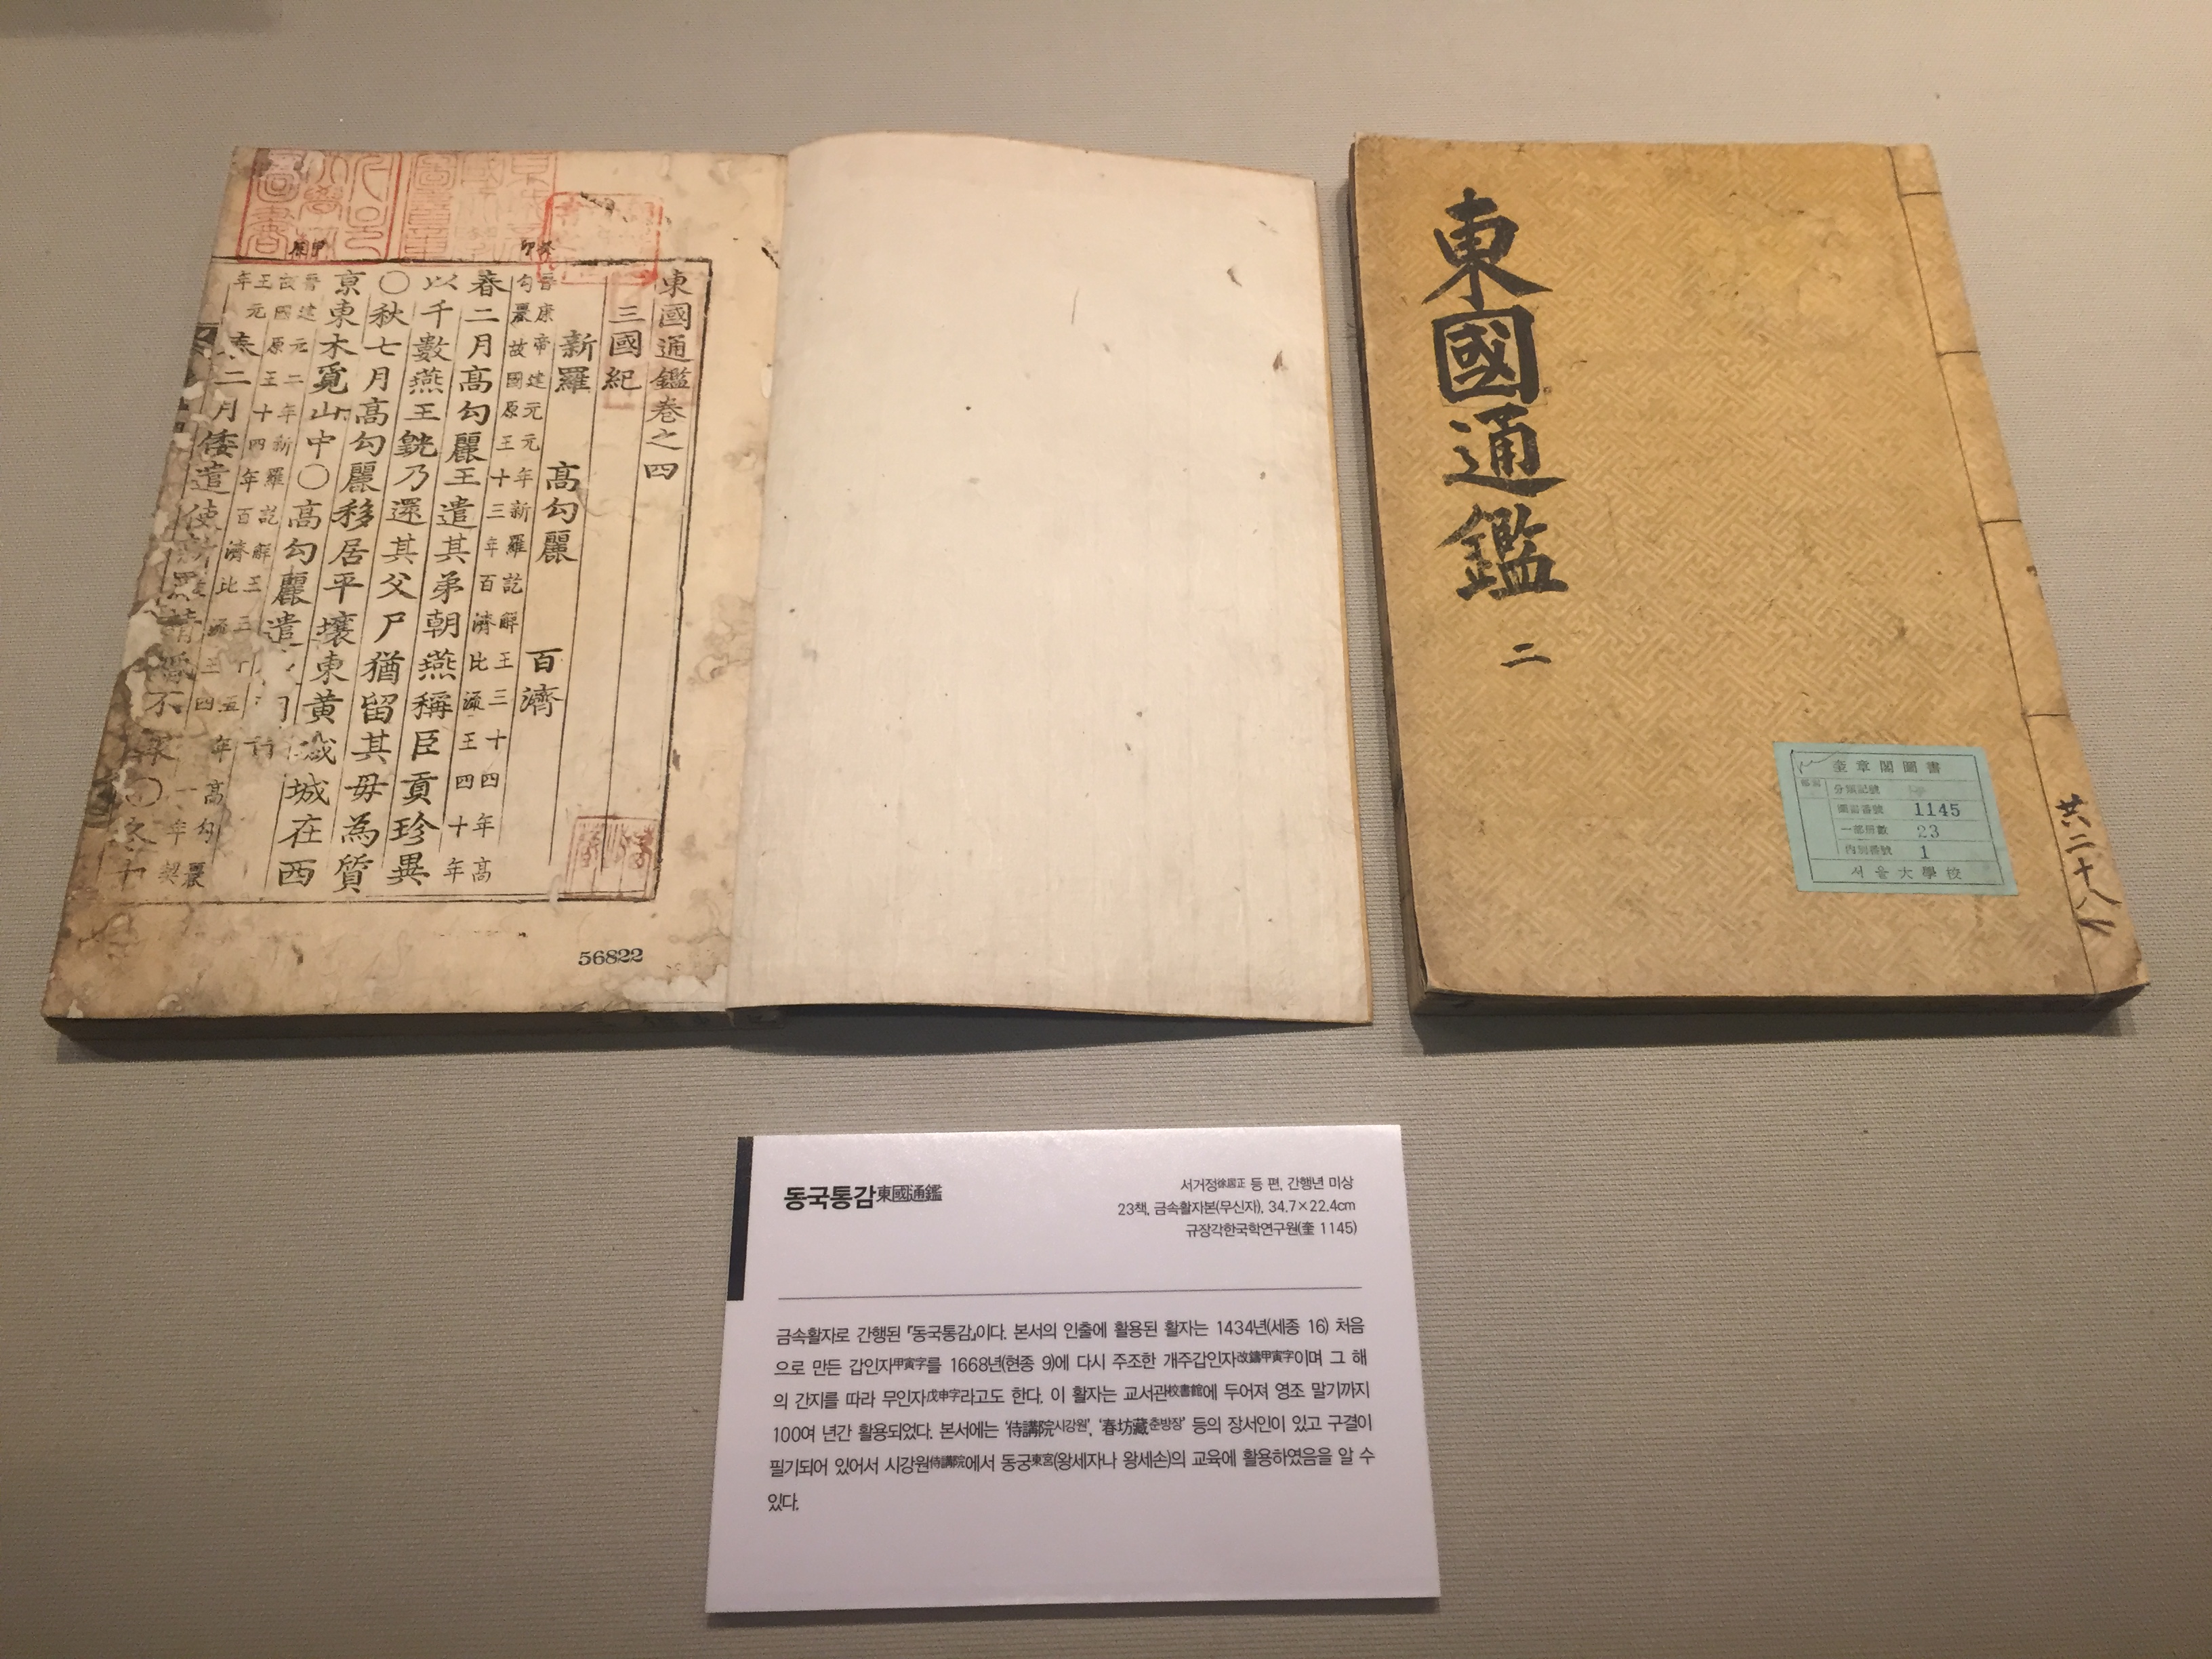 東國通鑑卷之四
三國紀
新羅 高勾麗 百濟
晉康帝建元元年新羅訖解王三十四年高
勾麗故國原王十三年百濟比流王四十年
春二月高勾麗王遣其弟朝燕稱臣貢珍異
以千數燕王皝乃還其父尸猶留其母為質
○秋七月高勾麗移居平壤東黃城城在西
京東木覓山中○高勾麗遣
晉建元二年新羅訖解王三十五年高勾麗
故國原王十四年百濟比流王四十一年
春二月倭遣使
癸卯
甲辰
56822
東國通鑑
二
奎章閣圖書
分類記號
圖書番號 1145
一部冊數 23
內別番號 1
서울大學校
共二十八
동국통감東國通鑑
서거정徐居正 등 편, 간행년 미상
23책, 금속활자본(무신자), 34.7×22.4cm
규장각한국학연구원(奎 1145)
금속활자로 간행된 『동국통감』이다. 본서의 인출에 활용된 활자는 1434년(세종 16) 처음
으로 만든 갑인자甲寅字를 1668년(현종 9)에 다시 주조한 개주갑인자改鑄甲寅字이며 그 해
의 간지를 따라 무인자戊申字라고도 한다. 이 활자는 교서관校書館에 두어져 영조 말기까지
100여 년간 활용되었다. 본서에는 '侍講院시강원', '春坊藏춘방장' 등의 장서인이 있고 구결이
필기되어 있어서 시강원侍講院에서 동궁東宮(왕세자나 왕세손)의 교육에 활용하였음을 알 수
있다.